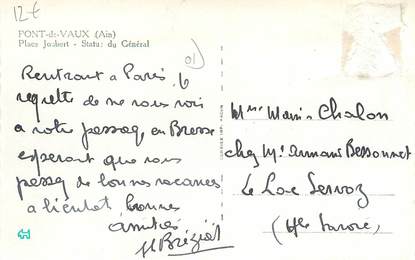 12 €
PONT-de-VAUX (Ain)
Place Joubert - Statue du Général
01
Rentrant a Paris
regrette de ne vous voir
a votre passag, en Bresse
esperant que vous
passez de bonnes vacances
a bientot bonnes
amitiés
Mme Marie Chalon
chez Mr Armand Bessonnet
Le Lac Servoz
(Hte Savoie)